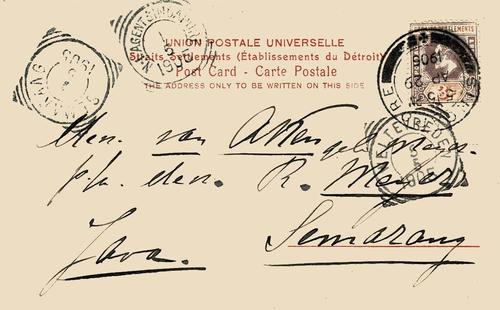 UNION POSTALE UNIVERSELLE
Straits Settlements (Établissements du Détroit)
Post Card - Carte Postale
THE ADDRESS ONLY TO BE WRITTEN ON THIS SIDE
1905
AP 29
1905
WELTEVREDEN
Mevr. van Aken
p/a den. R. Meyer
Java. Semarang